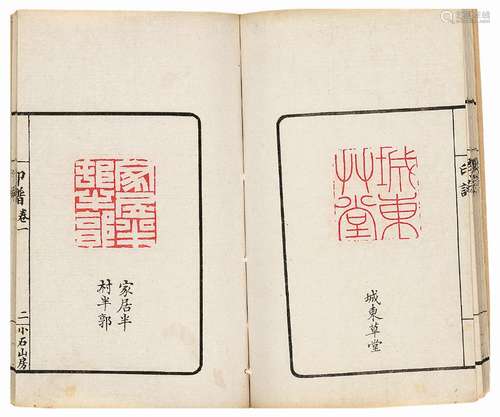 城東
艸堂
城東草堂
家居半
邨半郭
家居半
村半郭
印譜
卷一
二
小石山房
印譜